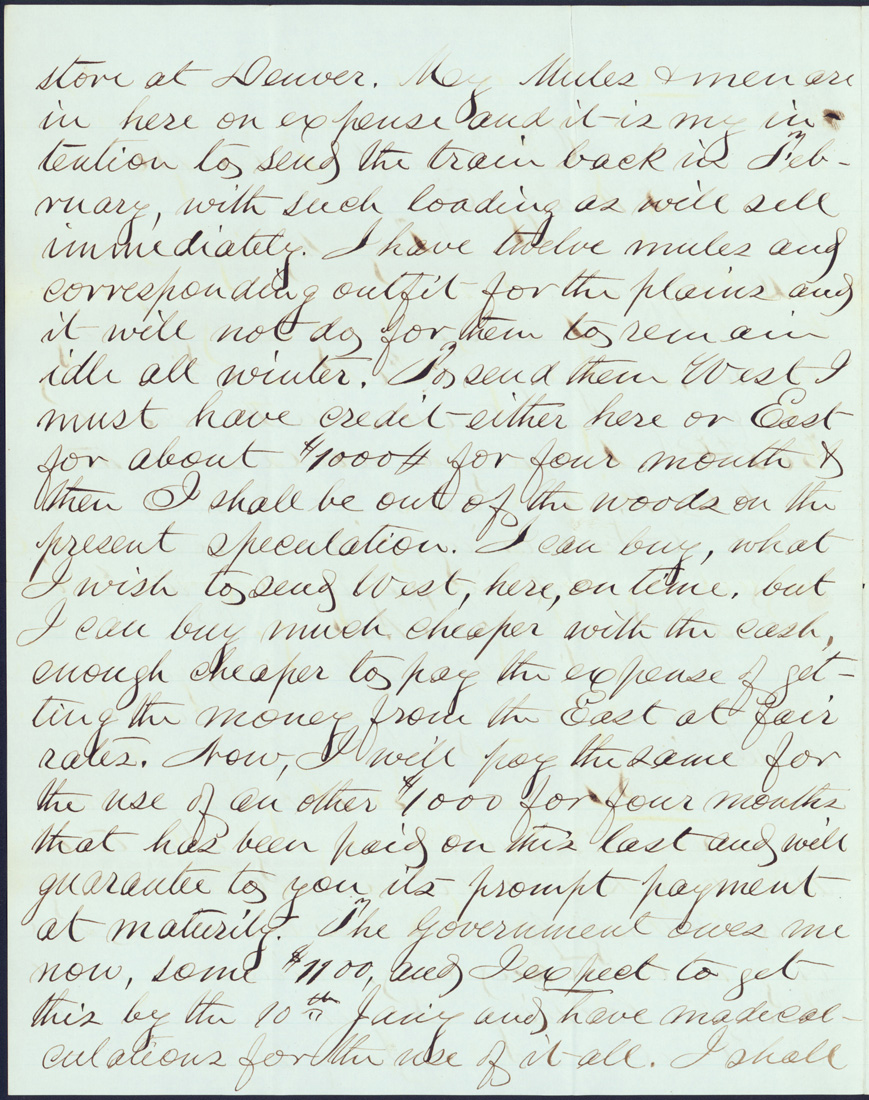 store at Denver. My Mules & men are
in here on expense and it is my in-
tention to send the train back in Feb-
ruary, with such loading as will sell
immediately. I have twelve mules and
corresponding outfit for the plains and
it will not do for them to remain
idle all winter. To send them West I
must have credit either here or East
for about $1000 for four month &
then I shall be out of the woods on the
present speculation. I can buy, what
I wish to send West, here, on time. but
I can buy much cheaper with the cash,
enough cheaper to pay the expense of get-
ting the money from the East at fair
rates. Now, I will pay the same for
the use of an other $1000 for four months
that has been paid on this last and will
guarantee to you its prompt payment
at maturity. The Government owes me
now, some $1100, and I expect to get
this by the 10th Jany and have made cal-
culations for the use of it all. I shall